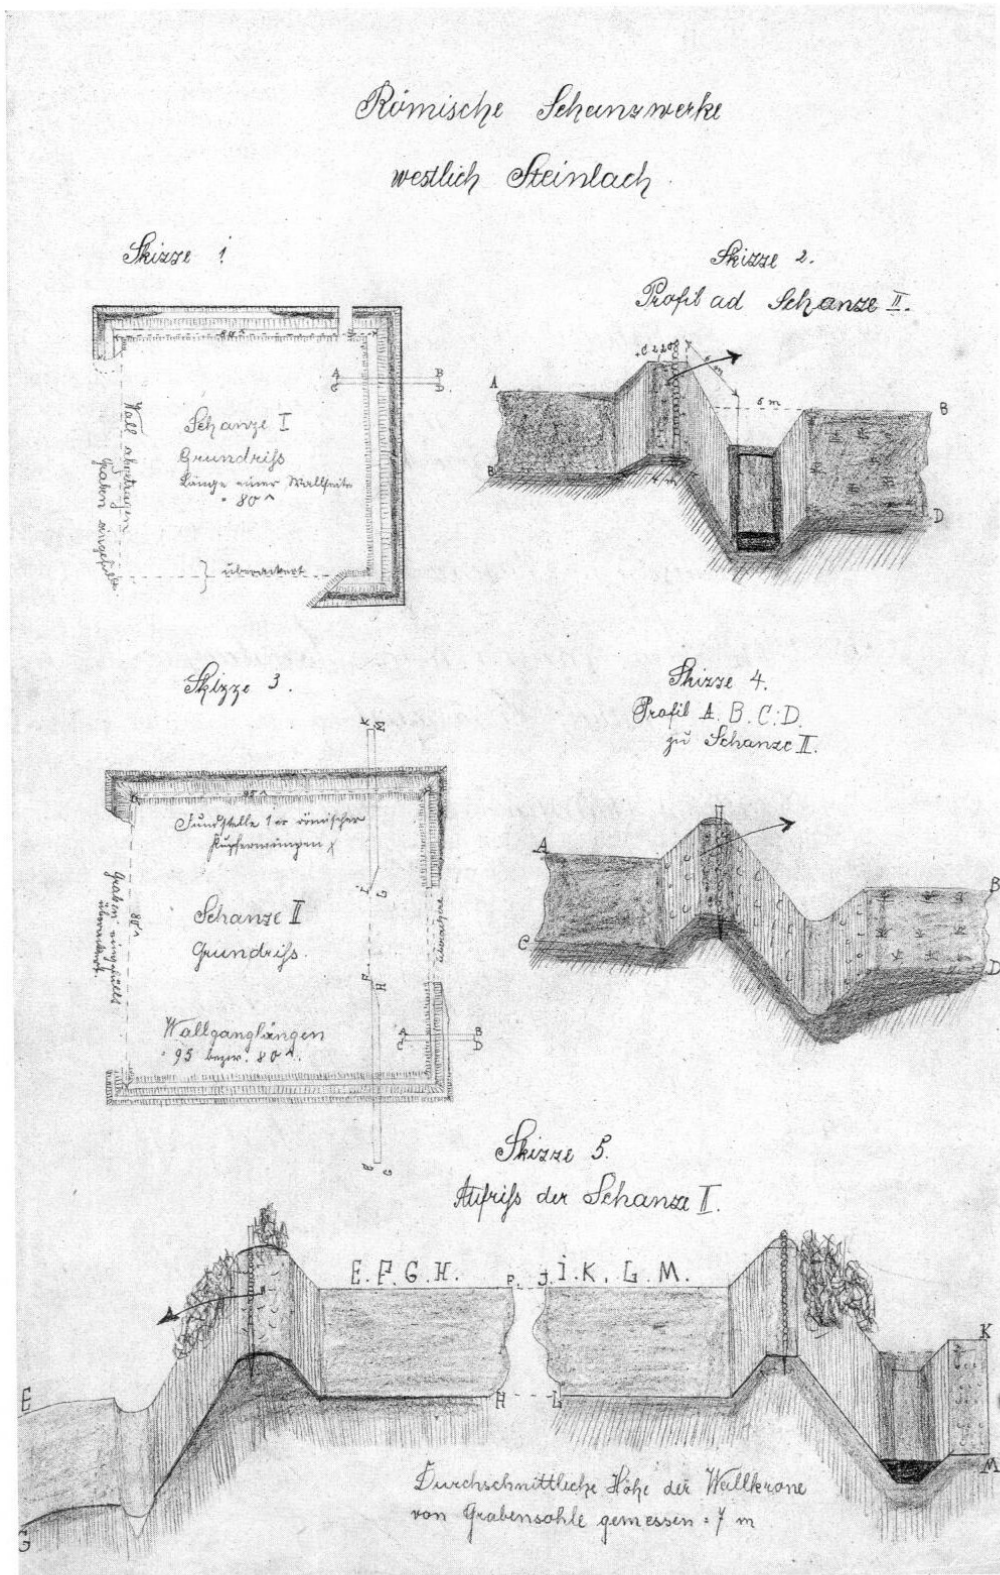 Römische Schanzwerke
westlich Steinlach.
Skizze 1
80 m
A B
C D
Schanze I
Grundriß
Länge einer Wallseite
= 80 m
Wall abgetragen
Graben eingefüllt
überackert
Skizze 2.
Profil ad Schanze II.
A
B
6 m
B
D
Skizze 3.
K M
95 m
Fundstelle 1er römischer
Kupfermünzen
L
Schanze II
Grundriß.
80 m
Graben eingefüllt
überackert.
überackert
F H
Wallganglängen
= 95 bezw. 80 m.
A B
C D
E G
Skizze 4.
Profil A. B. C. D.
zu Schanze II.
A
B
C
D
Skizze 5.
Aufriß der Schanze I.
E. F. G. H.
F. J.
I. K. L. M.
E
K
H
L
M
G
Durchschnittliche Höhe der Wallkrone
von Grabensohle gemessen = 7 m